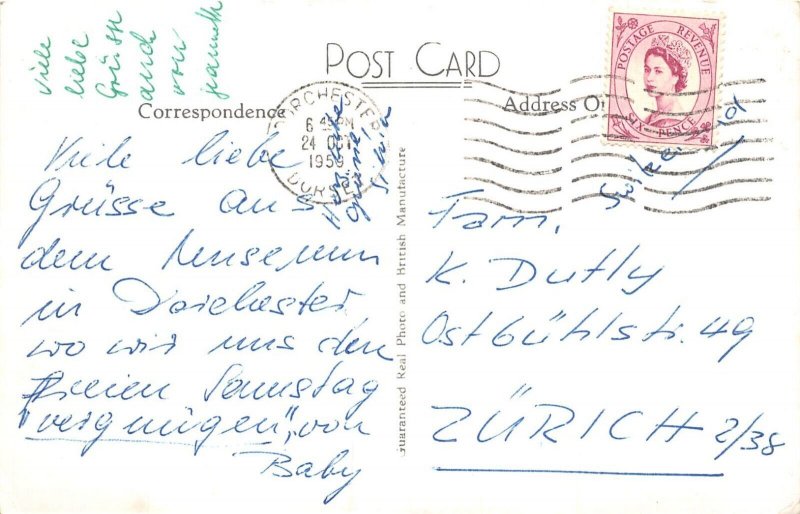 Viele
liebe
Grüsse
auch
von
POST CARD
Correspondence
Address On
DORCHESTER
6 45 PM
24 OCT
195
DORSET
POSTAGE REVENUE
SIX PENCE
Viele liebe
Grüsse aus
dem Museum
in Dorchester,
wo wir uns den
freien Samstag
"vergnügen", von
Baby
Herzliche
Grüsse,
Guaranteed Real Photo and British Manufacture
Fam.
K. Dutly
Ostbühlstr. 49
ZÜRICH 2/38